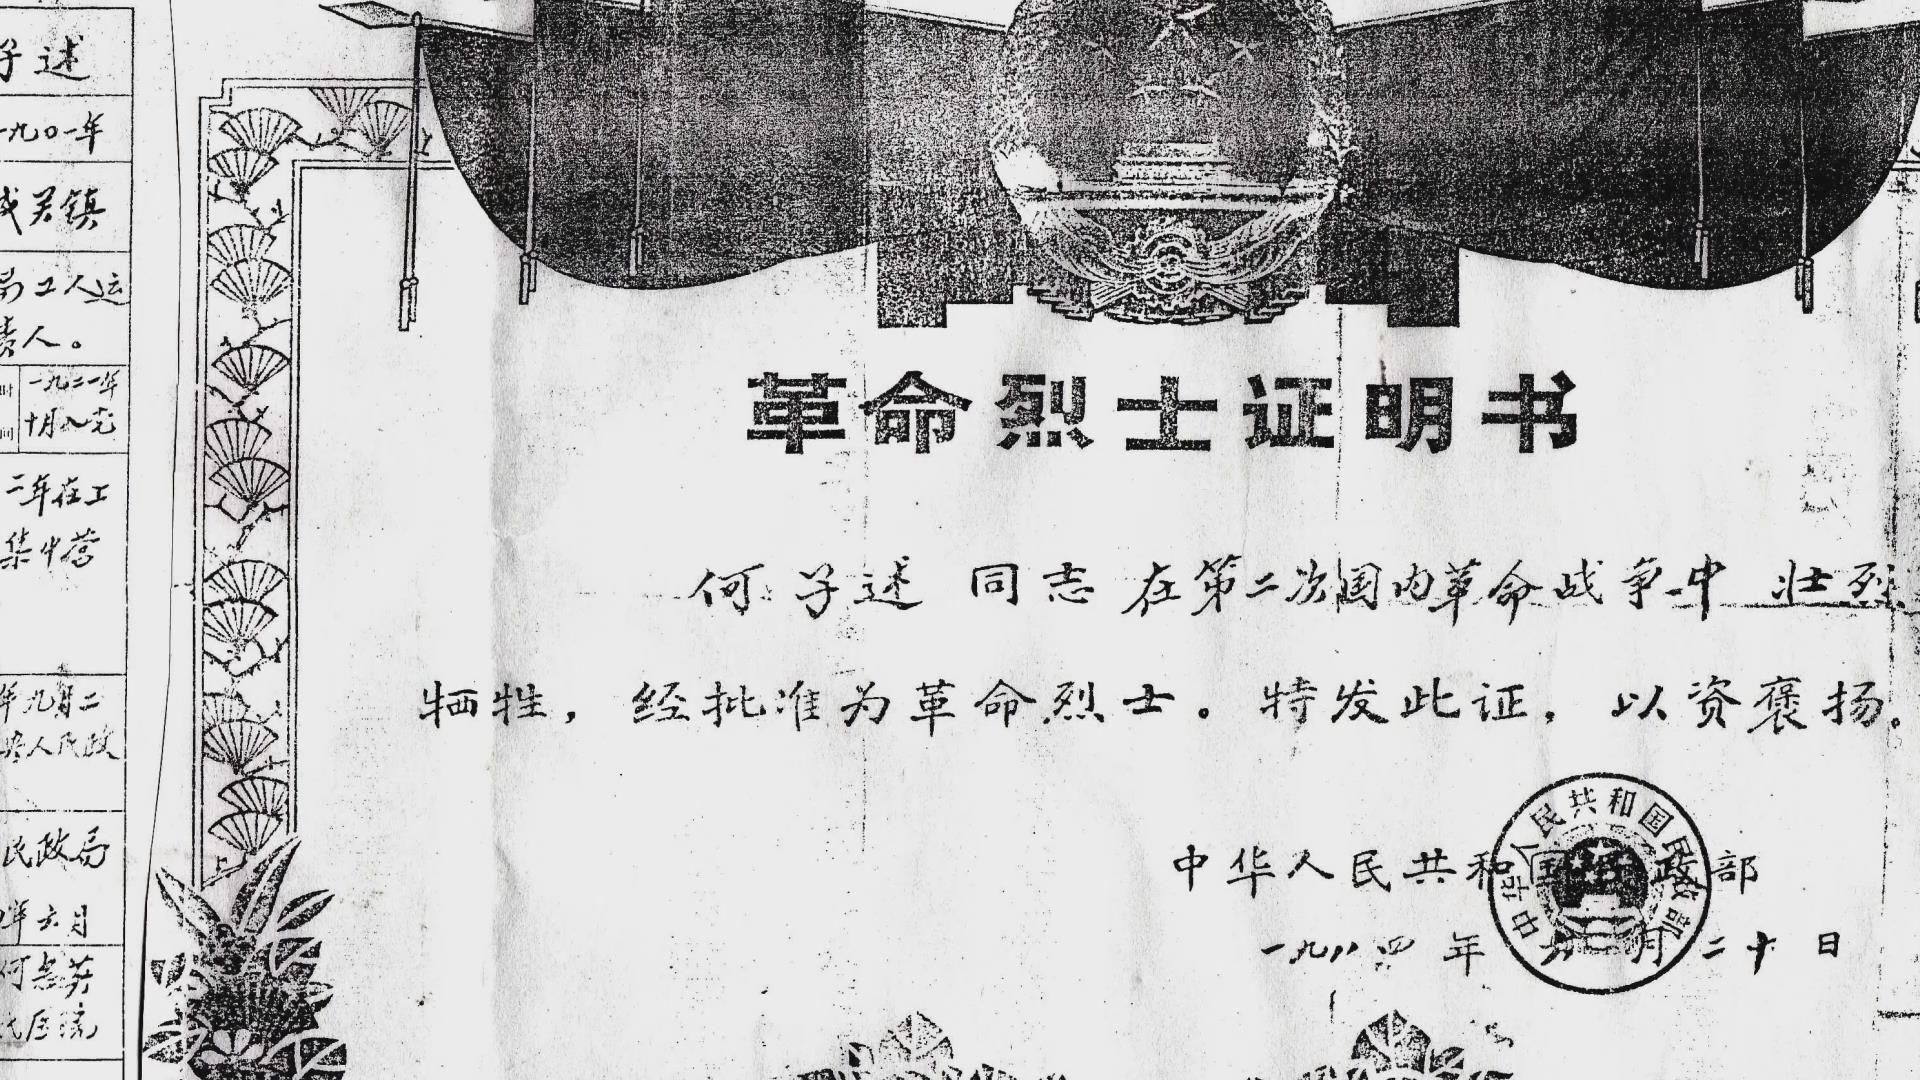 子述
一九〇一年
城关镇
局工人运
责人。
时间
一九二一年
十月入党
二年在工
集中营
年九月二
县人民政
民政局
年六月
何志
革命烈士证明书
何子述 同志 在第二次国内革命战争中 壮烈
牺牲，经批准为革命烈士。特发此证，以资褒扬。
中华人民共和国民政部
一九八四年六月二十日
中华人民共和国民政部